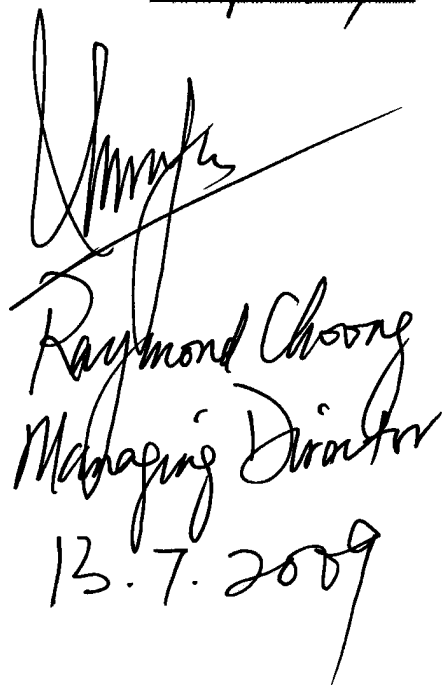 Raymond Choong
Managing Director
13.7.2009